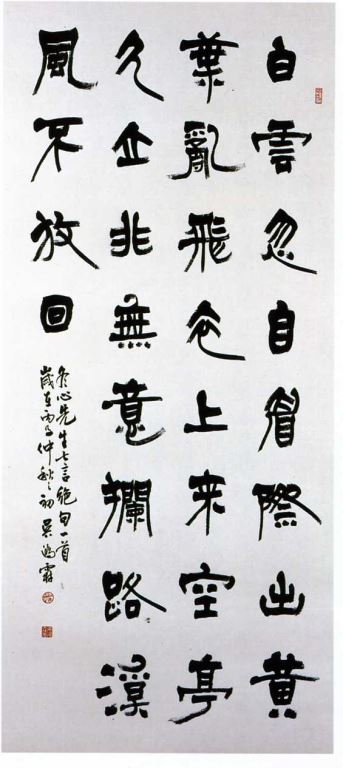 白雲忽自眉際出黃
葉亂飛衣上来空亭
久立非無意攔路溪
風不放回
冬心先生七言絕句一首
歲在丙子仲秋之初吳